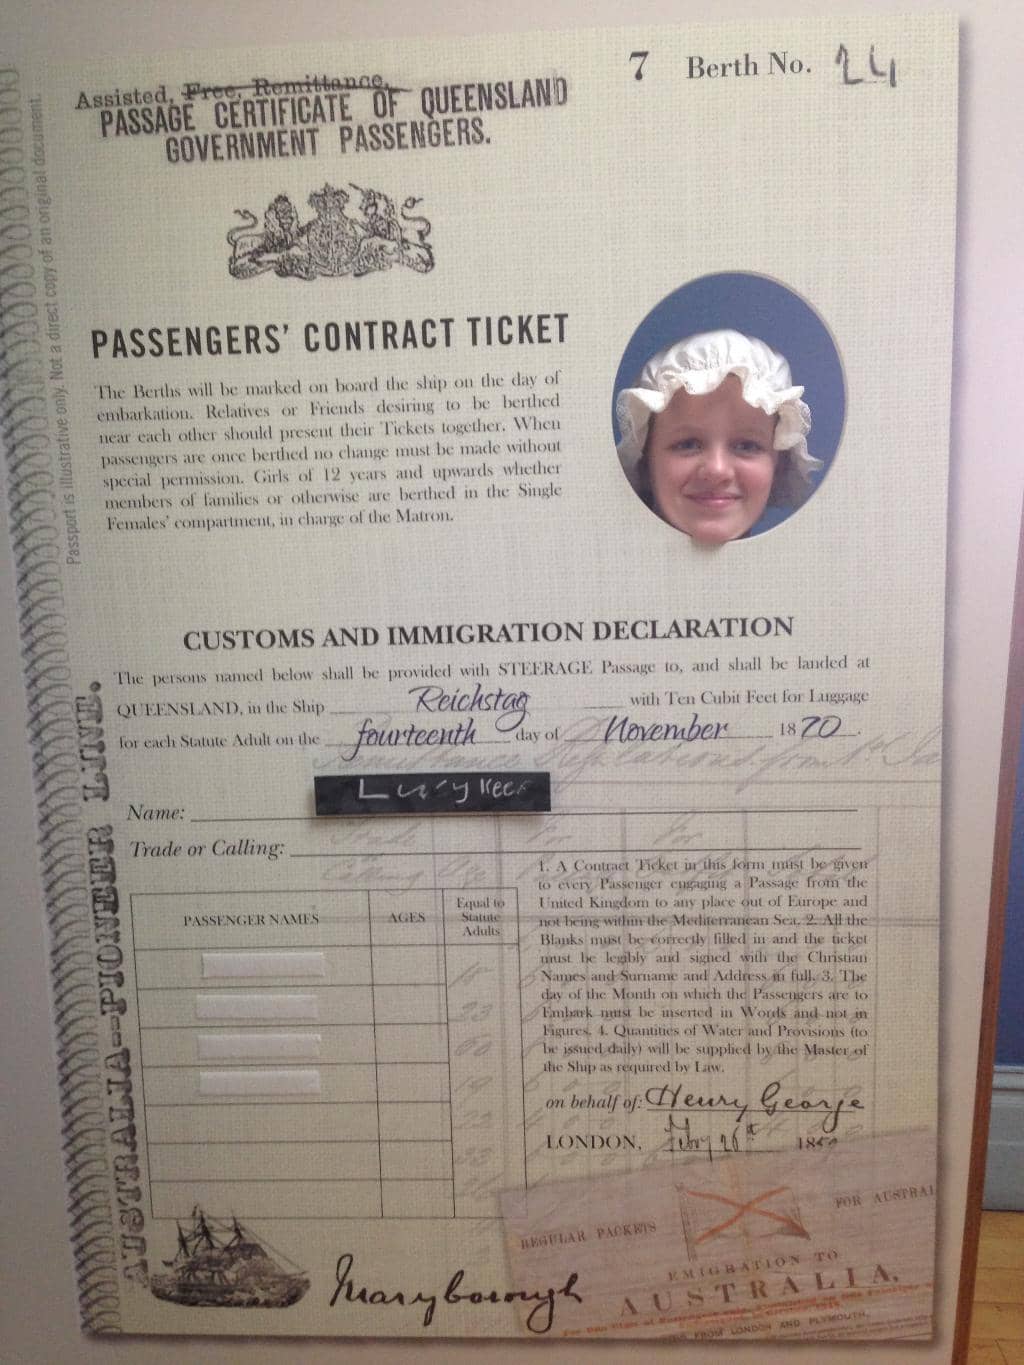 7 Berth No. 24
Assisted, Free, Remittance,
PASSAGE CERTIFICATE OF QUEENSLAND
GOVERNMENT PASSENGERS.
Passport is illustrative only. Not a direct copy of an original document.
PASSENGERS' CONTRACT TICKET
The Berths will be marked on board the ship on the day of
embarkation. Relatives or Friends desiring to be berthed
near each other should present their Tickets together. When
passengers are once berthed no change must be made without
special permission. Girls of 12 years and upwards whether
members of families or otherwise are berthed in the Single
Females' compartment, in charge of the Matron.
CUSTOMS AND IMMIGRATION DECLARATION
The persons named below shall be provided with STEERAGE Passage to, and shall be landed at
QUEENSLAND, in the Ship Reichstag with Ten Cubit Feet for Luggage
for each Statute Adult on the fourteenth day of November 1870.
Lucy
Name:
Trade or Calling:
PASSENGER NAMES
AGES
Equal to
Statute
Adults
1. A Contract Ticket in this form must be given
to every Passenger engaging a Passage from the
United Kingdom to any place out of Europe and
not being within the Mediterranean Sea. 2. All the
Blanks must be correctly filled in and the ticket
must be legibly and signed with the Christian
Names and Surname and Address in full. 3. The
day of the Month on which the Passengers are to
Embark must be inserted in Words and not in
Figures. 4. Quantities of Water and Provisions (to
be issued daily) will be supplied by the Master of
the Ship as required by Law.
on behalf of: Henry George
LONDON, Feby 26th
AUSTRALIA--PIONEER LINE.
Maryborough
REGULAR PACKETS
FOR AUSTRAL
EMIGRATION TO
AUSTRALIA,
FROM LONDON AND PLYMOUTH.